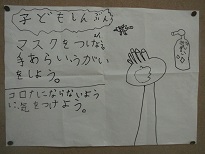 子どもしんぶん
マスクをつけ
手あらい、うがい
をしよう。
コロナにならないよう
に気をつけよう。